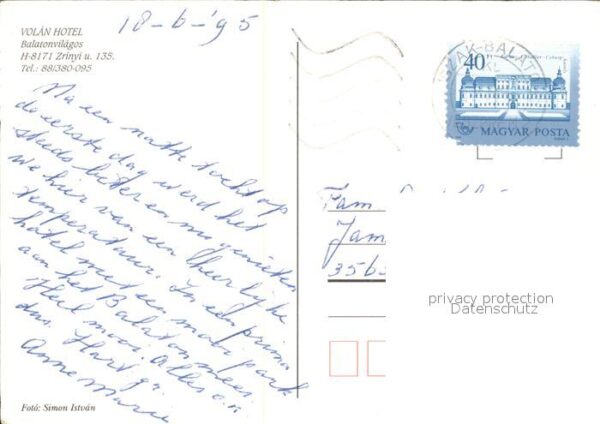 VOLÁN HOTEL
Balatonvilágos
H-8171 Zrínyi u. 135.
Tel.: 88/380-095
18-6-'95
Na een natte tocht op
de eerste dag werd het
steeds beter en nu genieten
we hier van een heerlijke
temperatuur. In een prima
hotel met een mooi park
aan het Balaton meer.
Heel mooi. Alles o.k.
dus. Hart. gr.
Annemarie
Fotó: Simon István
40 Ft
MAGYAR POSTA
Fam
Jam
356
privacy protection
Datenschutz